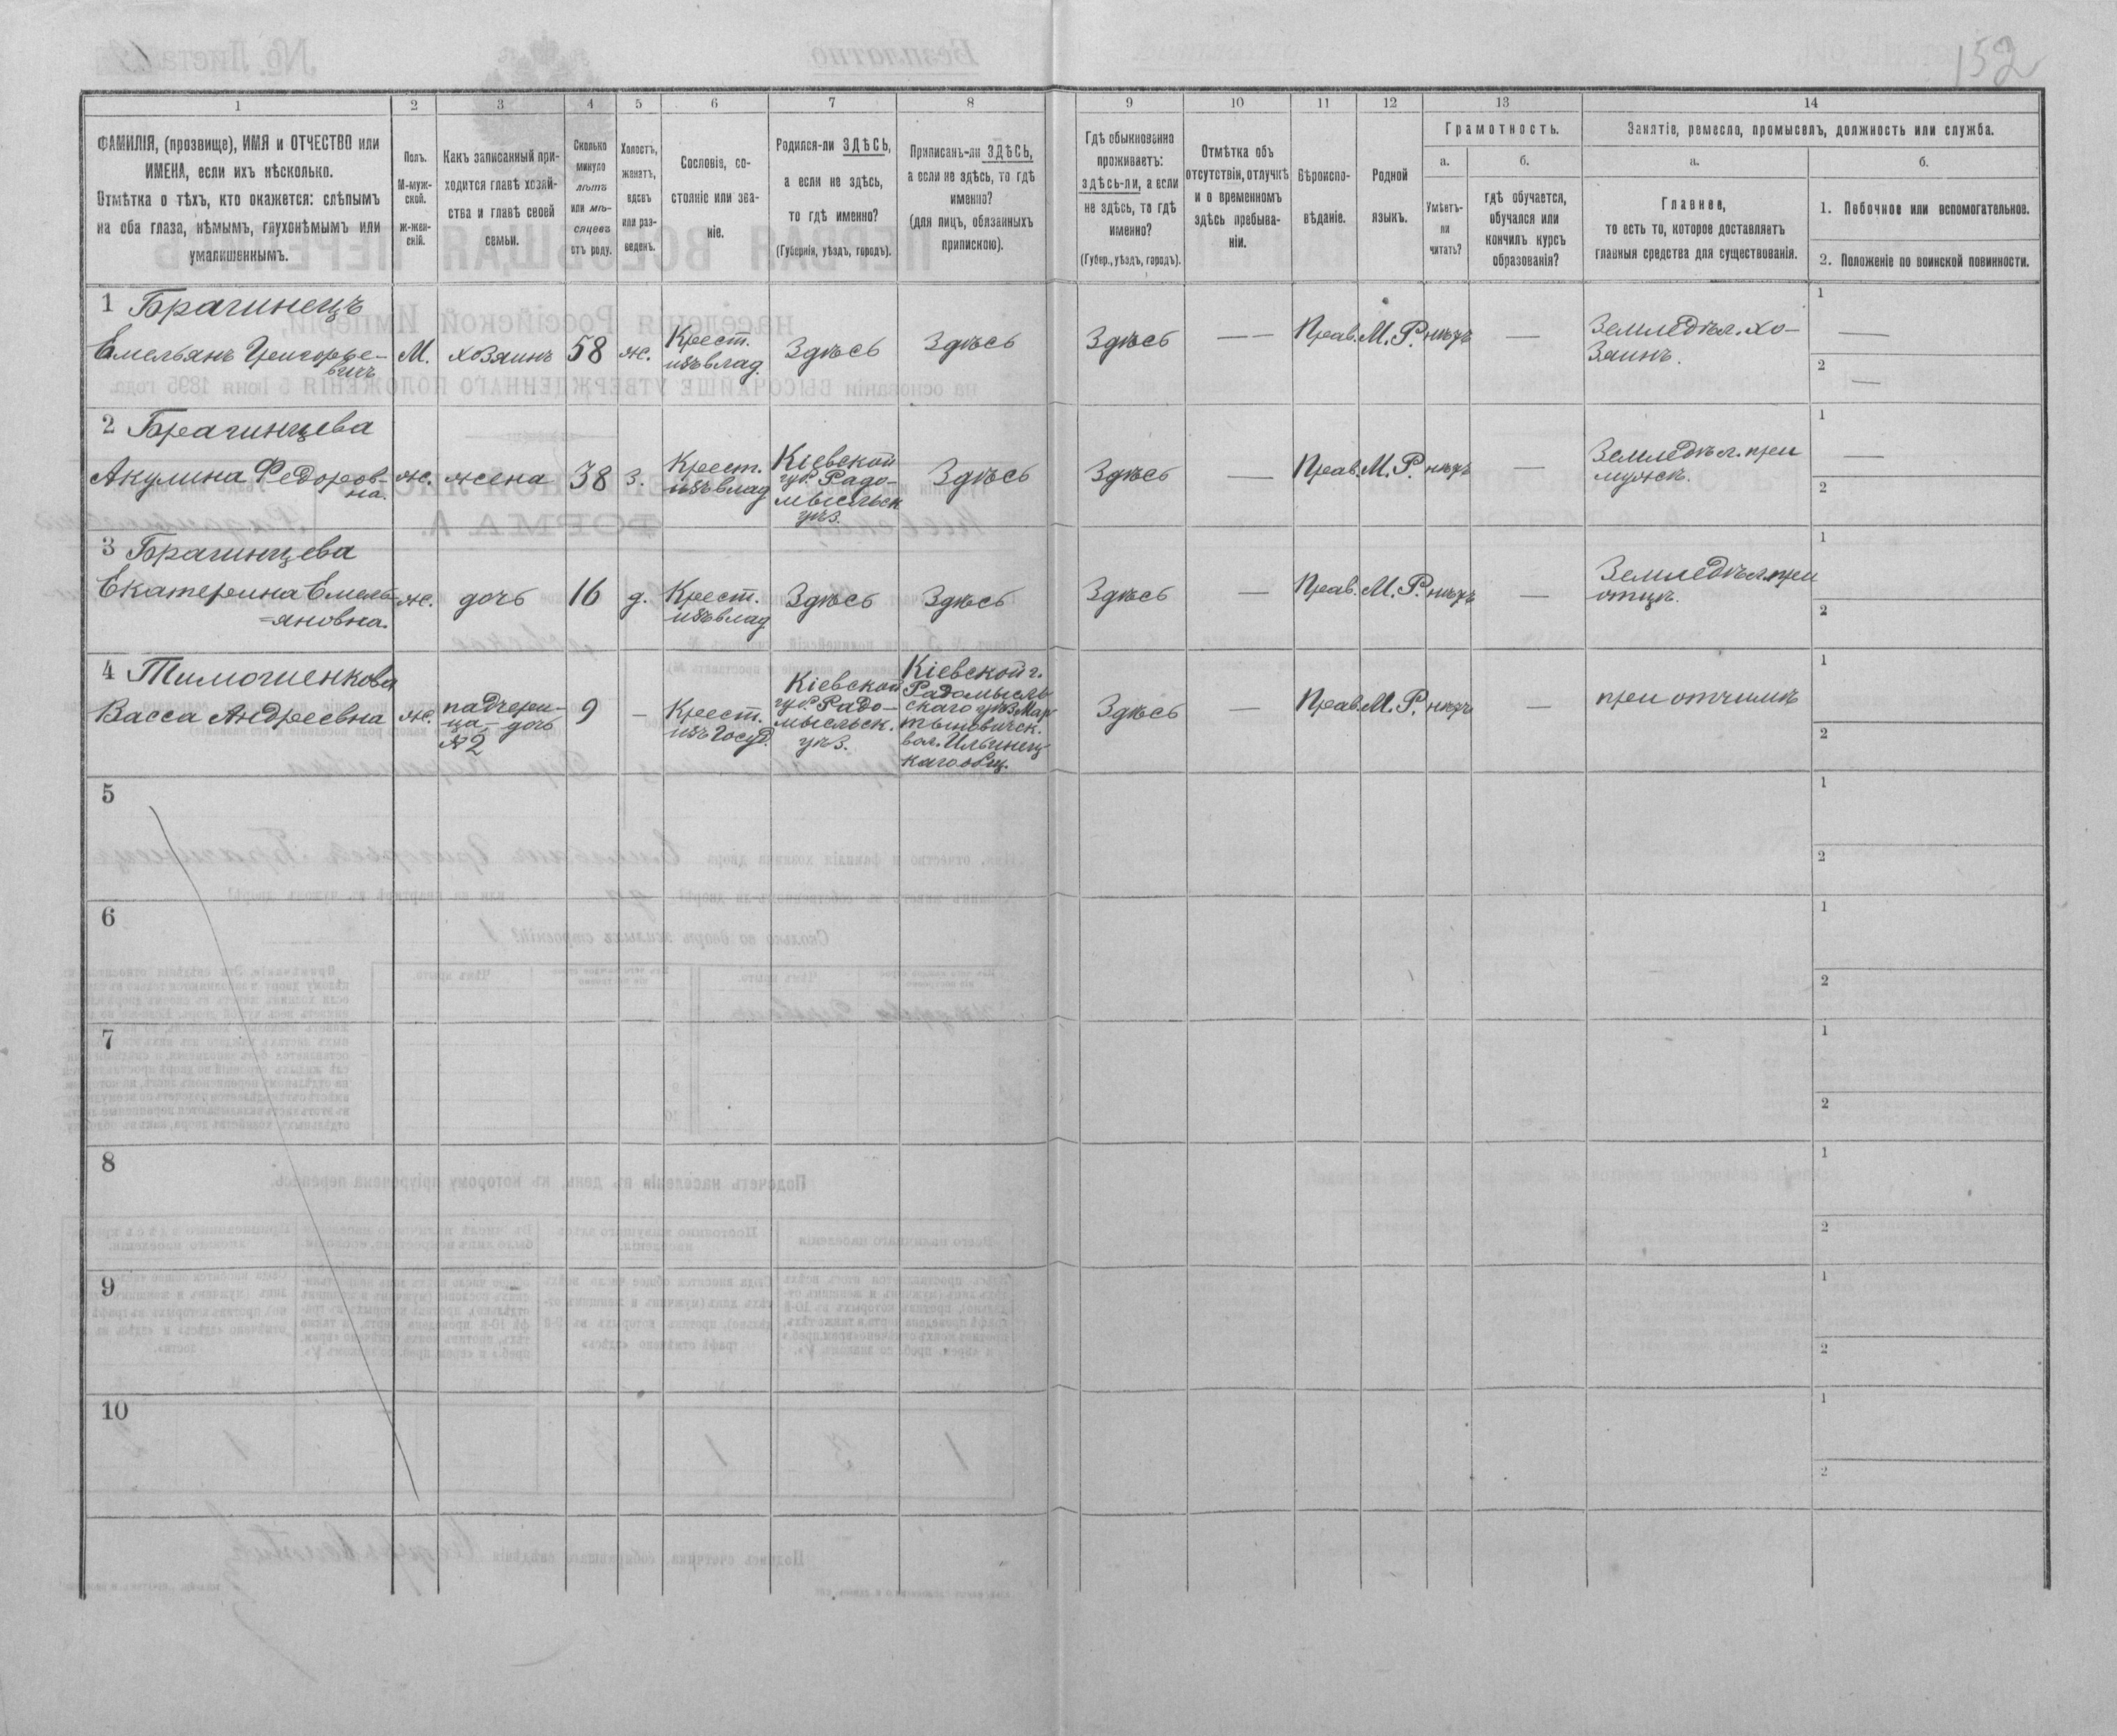 152
1 2 3 4 5 6 7 8 9 10 11 12 13 14
ФАМИЛІЯ, (прозвище), ИМЯ и ОТЧЕСТВО или
ИМЕНА, если ихъ нѣсколько.
Отмѣтка о тѣхъ, кто окажется: слѣпымъ
на оба глаза, нѣмымъ, глухонѣмымъ или
умалишеннымъ.
Полъ.
М-муж-
ской.
ж-жен-
скій.
Какъ записанный при-
ходится главѣ хозяй-
ства и главѣ своей
семьи.
Сколько
минуло
лѣтъ
или мѣ-
сяцевъ
отъ роду.
Холостъ,
женатъ,
вдовъ
или раз-
веденъ.
Сословіе, со-
стояніе или зва-
ніе.
Родился-ли ЗДѢСЬ,
а если не здѣсь,
то гдѣ именно?
(Губернія, уѣздъ, городъ).
Приписанъ-ли ЗДѢСЬ,
а если не здѣсь, то гдѣ
именно?
(для лицъ, обязанныхъ
припискою).
Гдѣ обыкновенно
проживаетъ:
здѣсь-ли, а если
не здѣсь, то гдѣ
именно?
(Губер., уѣздъ, городъ).
Отмѣтка объ
отсутствіи, отлучкѣ
и о временномъ
здѣсь пребыва-
ніи.
Вѣроиспо-
вѣданіе.
Родной
языкъ.
Грамотность.
а.
Умѣетъ-
ли
читать?
б.
гдѣ обучается,
обучался или
кончилъ курсъ
образованія?
Занятіе, ремесло, промыселъ, должность или служба.
а.
Главное,
то есть то, которое доставляетъ
главныя средства для существованія.
б.
1. Побочное или вспомогательное.
2. Положеніе по воинской повинности.
1 Брагинецъ
Емельянъ Григорье-
вичъ
М.
хозяинъ
58
ж.
Крест.
изъ влад.
Здѣсь
Здѣсь
Здѣсь
— —
Прав.
М. Р.
нѣтъ
—
Земледѣл. хо-
зяинъ.
1
—
2
—
2 Брагинцева
Акулина Федоров-
на.
ж.
жена
38
з.
Крест.
изъ влад
Кіевской
губ. Радо-
мысльск
уѣз.
Здѣсь
Здѣсь
—
Прав.
М. Р.
нѣтъ
—
Земледѣл. при
мужѣ.
1
—
2
3 Брагинцева
Екатерина Емель-
=яновна.
ж.
дочь
16
д.
Крест.
изъ влад
Здѣсь
Здѣсь
Здѣсь
—
Прав.
М. Р.
нѣтъ
—
Земледѣл. при
отцѣ.
1
2
4 Тимошенкова
Васса Андреевна
ж.
падчери-
ца — дочь
№2
9
—
Крест.
изъ Госуд.
Кіевской
губ. Радо-
мысльск.
уѣз.
Кіевской г.
Радомысль
скаго уѣз. Мар
тыновичск.
вол. Ильинец
каго общ.
Здѣсь
—
Прав.
М. Р.
нѣтъ
—
при отчимѣ
1
2
5
1
2
6
1
2
7
1
2
8
1
2
9
1
2
10
1
2